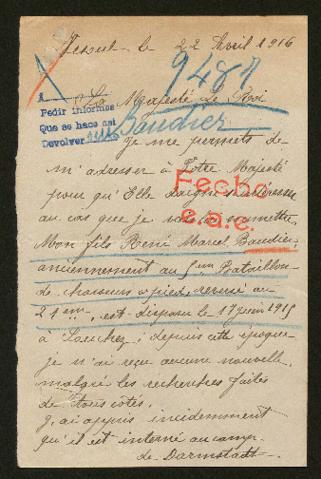 Vesoul le 22 Avril 1916
9487
Sa Majesté Le Roi
Pedir informes
Que se hace así
Devolver
Baudier
Je me permets de
m'adresser à Votre Majesté
pour qu'Elle daigne s'intéresser
au cas que je vais lui soumettre,
Fecho
e.a.c.
Mon fils René Marcel Baudier,
anciennement au 5eme Bataillon
de chasseurs à pied, reversé au
21eme, est disparu le 17 juin 1915
à ; depuis cette époque
je n'ai reçu aucune nouvelle,
malgré les recherches faites
de tous côtés.
J'ai appris incidemment
qu'il est interné au camp
de Darmstadt.